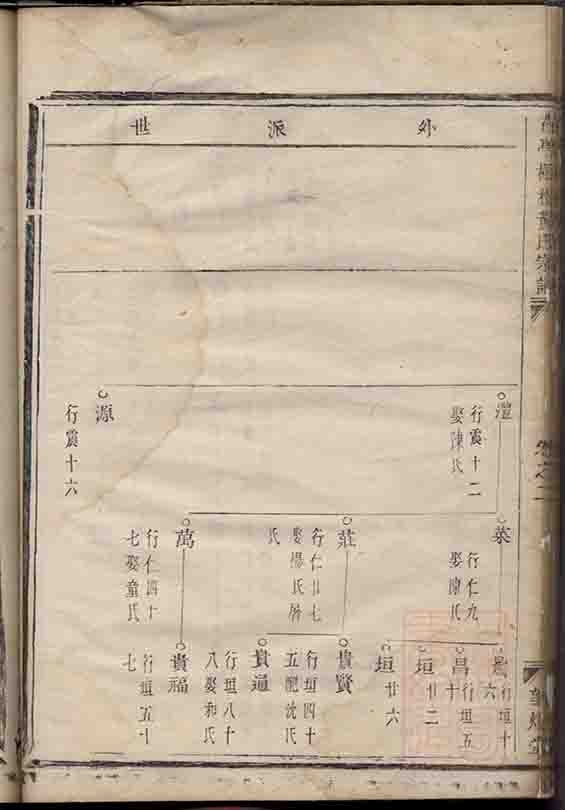 外派世
宗譜
卷之二
澧
行震十二
娶陳氏
源
行震十六
菜
行仁九
娶陳氏
莊
行仁廿七
娶楊氏
氏
萬
行仁四十
七娶童氏
行垣十
六
昌
行垣五
十
垣
廿二
垣
廿六
貴賢
行垣四十
五配沈氏
貴通
行垣八十
八娶和氏
貴福
行垣五十
七